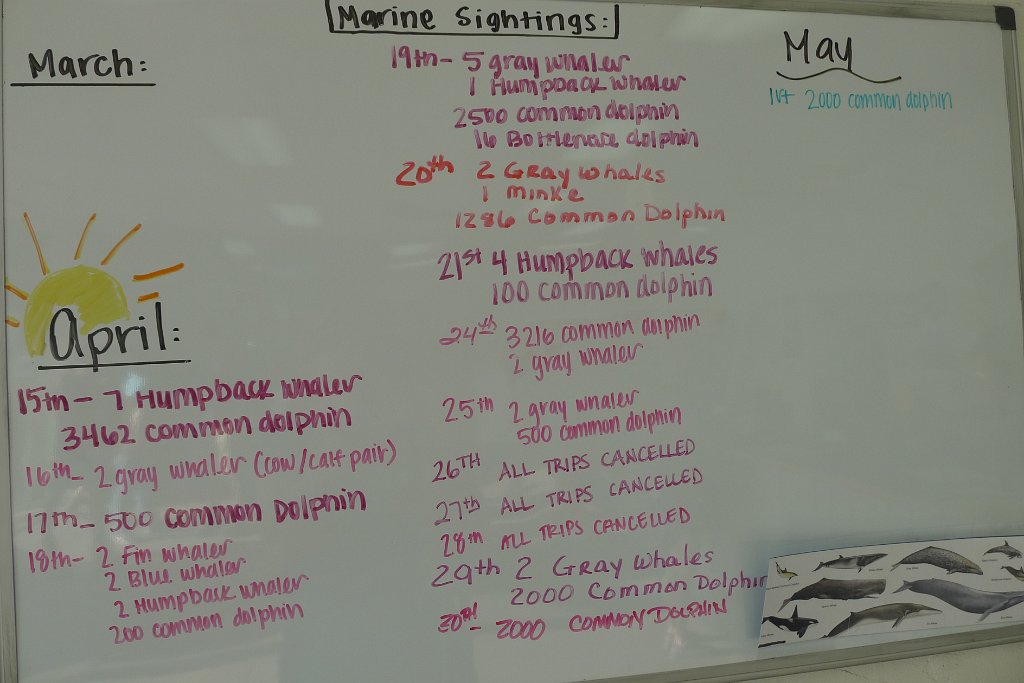 Marine Sightings:
March:
April:
15th - 7 Humpback whales
3462 common dolphin
16th - 2 gray whales (cow/calf pair)
17th - 500 common Dolphin
18th - 2 Fin whales
2 Blue whales
2 Humpback whales
200 common dolphin
19th - 5 gray whales
1 Humpback whales
2500 common dolphin
16 Bottlenose dolphin
20th 2 Gray whales
1 minke
1286 Common Dolphin
21st 4 Humpback whales
100 common dolphin
24th 3216 common dolphin
2 gray whales
25th 2 gray whales
500 common dolphin
26TH ALL TRIPS CANCELLED
27th ALL TRIPS CANCELLED
28th ALL TRIPS CANCELLED
29th 2 Gray Whales
2000 Common Dolphin
30th - 2000 COMMON DOLPHIN
May
1st 2000 common dolphin